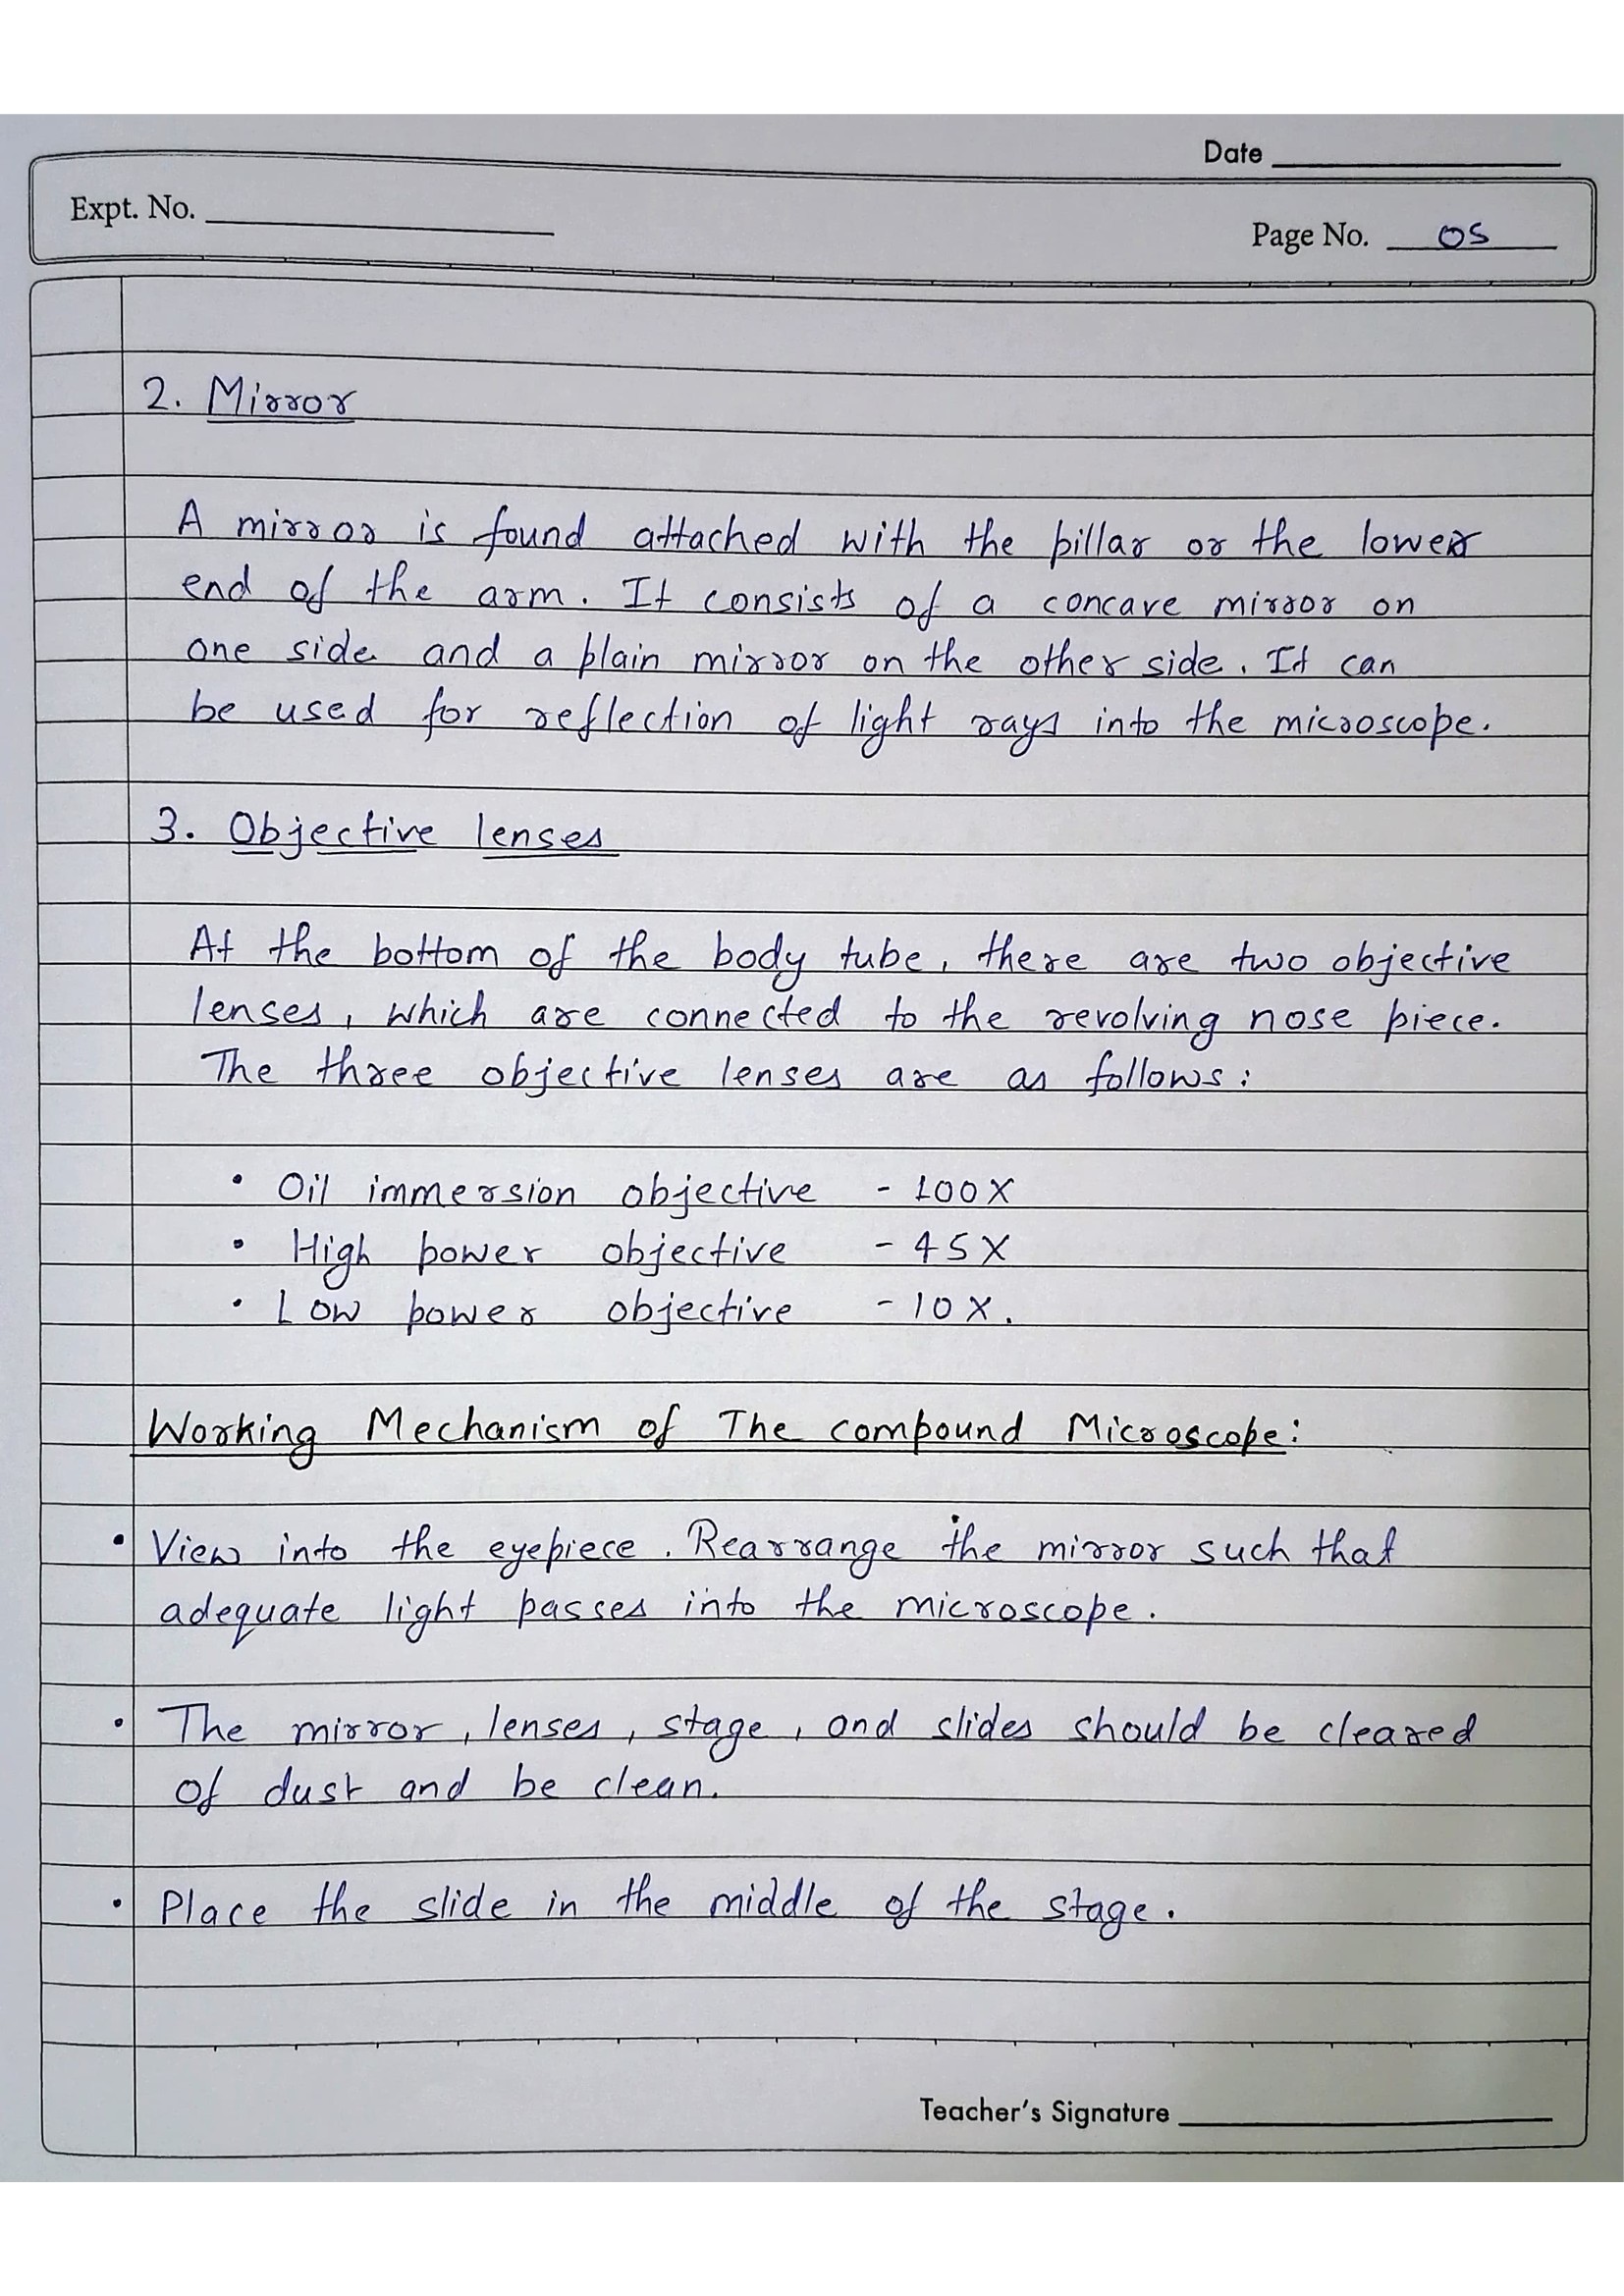 Date
Expt. No.
Page No. 05
2. Mirror
A mirror is found attached with the pillar or the lower
end of the arm. It consists of a concave mirror on
one side and a plain mirror on the other side. It can
be used for reflection of light rays into the microscope.
3. Objective lenses
At the bottom of the body tube, there are two objective
lenses, which are connected to the revolving nose piece.
The three objective lenses are as follows:
• Oil immersion objective - 100X
• High power objective - 45X
• Low power objective - 10X.
Working Mechanism of The compound Microscope:
• View into the eyepiece. Rearrange the mirror such that
adequate light passes into the microscope.
• The mirror, lenses, stage, and slides should be cleared
of dust and be clean.
• Place the slide in the middle of the stage.
Teacher's Signature